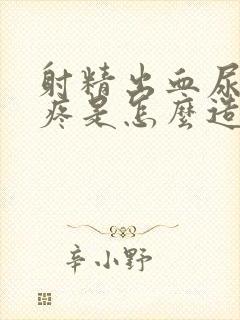 射精出血尿
疼是怎麼造
辛小野